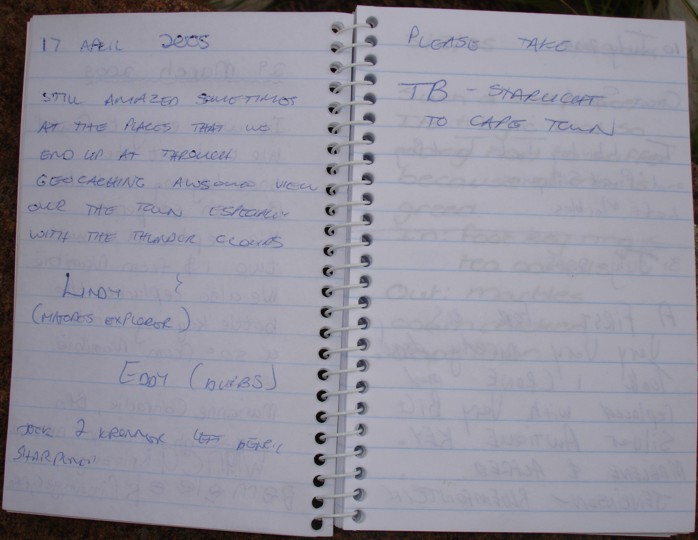 17 APRIL 2005
STILL AMAZED SOMETIMES
AT THE PLACES THAT WE
END UP AT THROUGH
GEOCACHING AWSOME VIEW
OVER THE TOWN ESPECIALLY
WITH THE THUNDER CLOUDS
LINDY
(MATOPOS EXPLORER)
EDDY (DUIBS)
TOOK 2 KRONNER LEFT PENCIL
SHARPENER
PLEASE TAKE
TB - STARLIGHT
TO CAPE TOWN